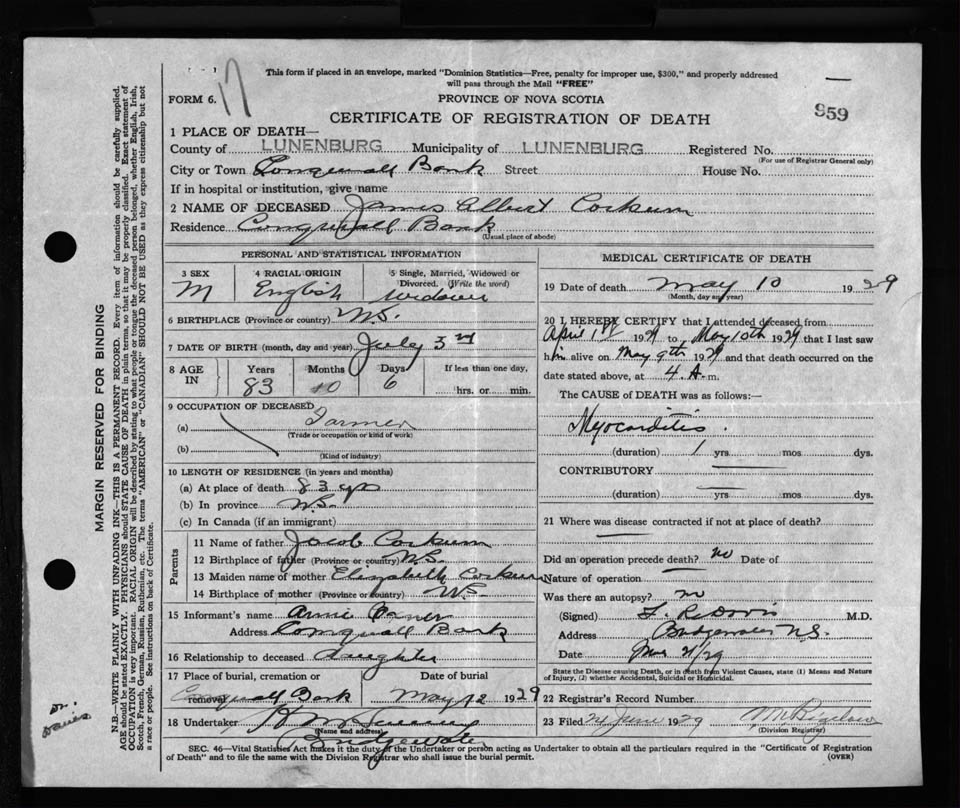 17
This form if placed in an envelope, marked "Dominion Statistics—Free, penalty for improper use, $300," and properly addressed
will pass through the Mail "FREE"
FORM 6.
PROVINCE OF NOVA SCOTIA
959
CERTIFICATE OF REGISTRATION OF DEATH
1 PLACE OF DEATH—
County of LUNENBURG Municipality of LUNENBURG Registered No.
(For use of Registrar General only)
City or Town Conquerall Bank Street House No.
If in hospital or institution, give name
2 NAME OF DECEASED James Albert Corkum
Residence Conquerall Bank
(Usual place of abode)
PERSONAL AND STATISTICAL INFORMATION
3 SEX 4 RACIAL ORIGIN 5 Single, Married, Widowed or
Divorced. (Write the word)
M English widower
6 BIRTHPLACE (Province or country) N.S.
7 DATE OF BIRTH (month, day and year) July 3rd
8 AGE IN Years Months Days If less than one day,
83 10 6 hrs. or min.
9 OCCUPATION OF DECEASED
(a) Farmer
(Trade or occupation or kind of work)
(b)
(Kind of industry)
10 LENGTH OF RESIDENCE (in years and months)
(a) At place of death 83 yrs
(b) In province N.S.
(c) In Canada (if an immigrant)
Parents
11 Name of father Jacob Corkum
12 Birthplace of father (Province or country) N.S.
13 Maiden name of mother Elizabeth Corkum
14 Birthplace of mother (Province or country) N.S.
15 Informant's name Annie
Address Conquerall Bank
16 Relationship to deceased daughter
17 Place of burial, cremation or Date of burial
removal Conquerall Bank May 12 1929
18 Undertaker
(Name and address)
Bridgewater
MEDICAL CERTIFICATE OF DEATH
19 Date of death May 10 1929
(Month, day and year)
20 I HEREBY CERTIFY that I attended deceased from
April 1st 1929 to May 10th 1929 that I last saw
him alive on May 9th 1929 and that death occurred on the
date stated above, at 4 A. m.
The CAUSE of DEATH was as follows:—
Myocarditis.
(duration) 1 yrs mos dys.
CONTRIBUTORY
(duration) yrs mos dys.
21 Where was disease contracted if not at place of death?
Did an operation precede death? no Date of
Nature of operation
Was there an autopsy? no
(Signed) M.D.
Address Bridgewater N.S.
Date /29
State the Disease causing Death, or in death from Violent Causes, state (1) Means and Nature
of Injury, (2) whether Accidental, Suicidal or Homicidal.
22 Registrar's Record Number
23 Filed June 1929
(Division Registrar)
SEC. 46—Vital Statistics Act makes it the duty of the Undertaker or person acting as Undertaker to obtain all the particulars required in the "Certificate of Registration
of Death" and to file the same with the Division Registrar who shall issue the burial permit.
(OVER)
MARGIN RESERVED FOR BINDING
N.B.—WRITE PLAINLY WITH UNFADING INK—THIS IS A PERMANENT RECORD. Every item of information should be carefully supplied.
AGE should be stated EXACTLY. PHYSICIANS should STATE CAUSE OF DEATH in plain terms, so that it may be properly classified. Exact statement of
OCCUPATION is very important. RACIAL ORIGIN will be described by stating to what people or tongue the deceased person belonged, whether English, Irish,
Scotch, French, German, Russian, Ruthenian, etc. The terms "AMERICAN" or "CANADIAN" SHOULD NOT BE USED as they express citizenship but not
a race or people. See instructions on back of Certificate.
Dr.
Davis